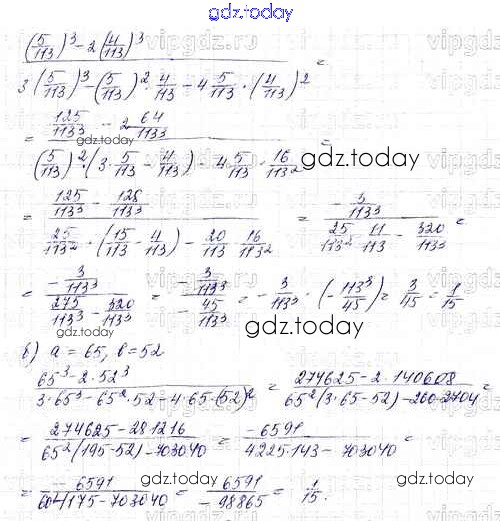 gdz.today
((5/113)³ - 2(4/113)³) / (3·(5/113)³ - (5/113)²·4/113 - 4·5/113·(4/113)²) =
= (125/113³ - 2·64/113³) / ((5/113)²·(3·5/113 - 4/113) - 4·5/113·16/113²) =
gdz.today
gdz.today
= (125/113³ - 128/113³) / (25/113²·(15/113 - 4/113) - 20/113·16/113²) = (-3/113³) / (25/113²·11/113 - 320/113³) =
= (-3/113³) / (275/113³ - 320/113³) = (-3/113³) / (-45/113³) = -3/113³·(-113³/45) = 3/45 = 1/15
gdz.today
gdz.today
в) a = 65, b = 52
(65³ - 2·52³) / (3·65³ - 65²·52 - 4·65·(52)²) = (274625 - 2·140608) / (65²(3·65 - 52) - 260·2704) =
= (274625 - 281216) / (65²(195 - 52) - 703040) = (-6591) / (4225·143 - 703040) =
gdz.today
gdz.today
= (-6591) / (604175 - 703040) = 6591 / (-98865) = 1/15.
gdz.today